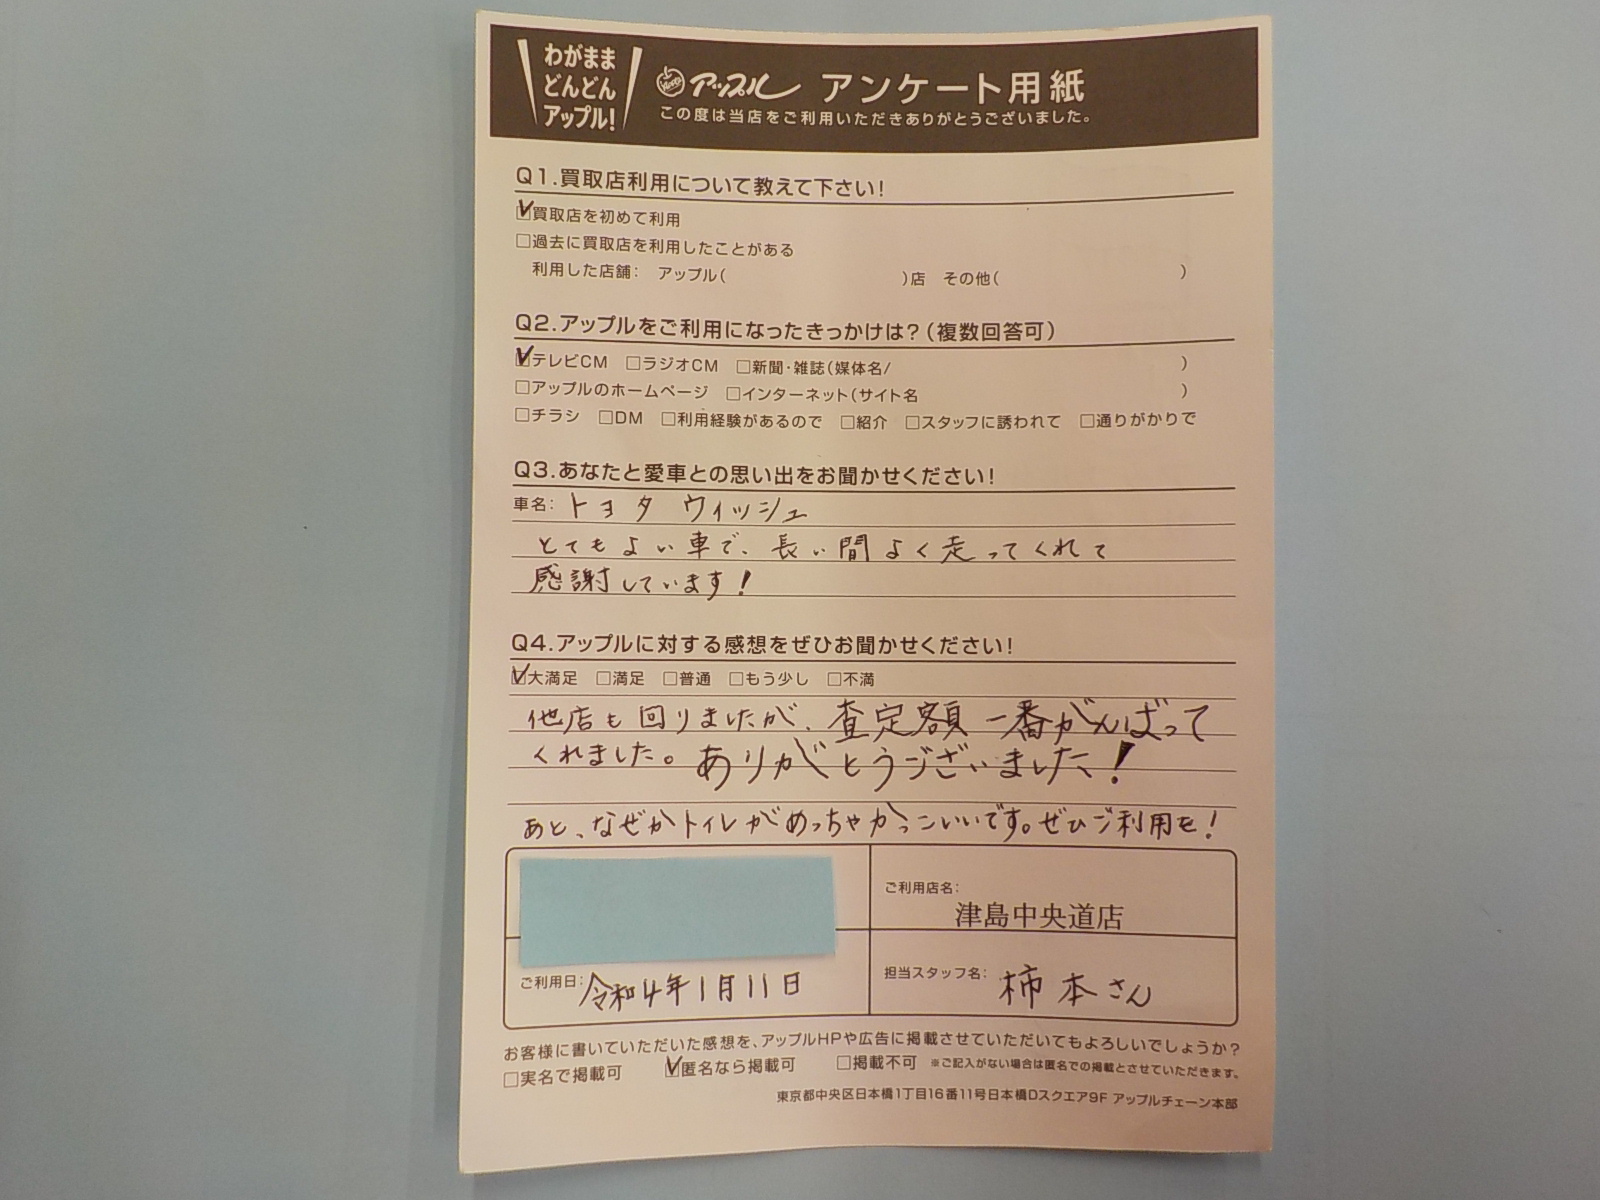 わがまま
どんどん
アップル!
アップル アンケート用紙
この度は当店をご利用いただきありがとうございました。
Q1.買取店利用について教えて下さい!
☑買取店を初めて利用
□過去に買取店を利用したことがある
利用した店舗: アップル( )店 その他( )
Q2.アップルをご利用になったきっかけは?(複数回答可)
☑テレビCM □ラジオCM □新聞・雑誌(媒体名/ )
□アップルのホームページ □インターネット(サイト名 )
□チラシ □DM □利用経験があるので □紹介 □スタッフに誘われて □通りがかりで
Q3.あなたと愛車との思い出をお聞かせください!
車名: トヨタ ウィッシュ
とてもよい車で、長い間よく走ってくれて
感謝しています!
Q4.アップルに対する感想をぜひお聞かせください!
☑大満足 □満足 □普通 □もう少し □不満
他店も回りましたが、査定額一番がんばって
くれました。ありがとうございました!
あと、なぜかトイレがめっちゃかっこいいです。ぜひご利用を!
ご利用店名:
津島中央道店
ご利用日: 令和4年1月11日
担当スタッフ名: 柿本さん
お客様に書いていただいた感想を、アップルHPや広告に掲載させていただいてもよろしいでしょうか?
□実名で掲載可 ☑匿名なら掲載可 □掲載不可 ※ご記入がない場合は匿名での掲載とさせていただきます。
東京都中央区日本橋1丁目16番11号日本橋Dスクエア9F アップルチェーン本部